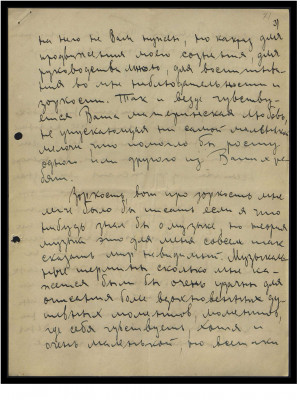 31
на него не Вам нужен, но как раз для
продвижения моего сознания, для
руководства мною, для воспитания
во мне наблюдательности и
зоркости. Так и везде чувству-
ется Ваша материнская любовь,
не упускающая ни самой маленькой
мелочи что помогло бы росту
одного или другого из Ваших ре
бят.
Зоркость, вот про зоркость мне
легче было бы писать если я что
нибудь знал бы о музыке, но теория
музыки это для меня совсем так
сказать мир невидимый. Музыкаль
ные термины сколько мне ка-
жется были бы очень удачны для
описания более вдохновенных ду-
шевных моментов, моментов,
где себя чувствуешь, хотя и
очень маленькой, но все таки